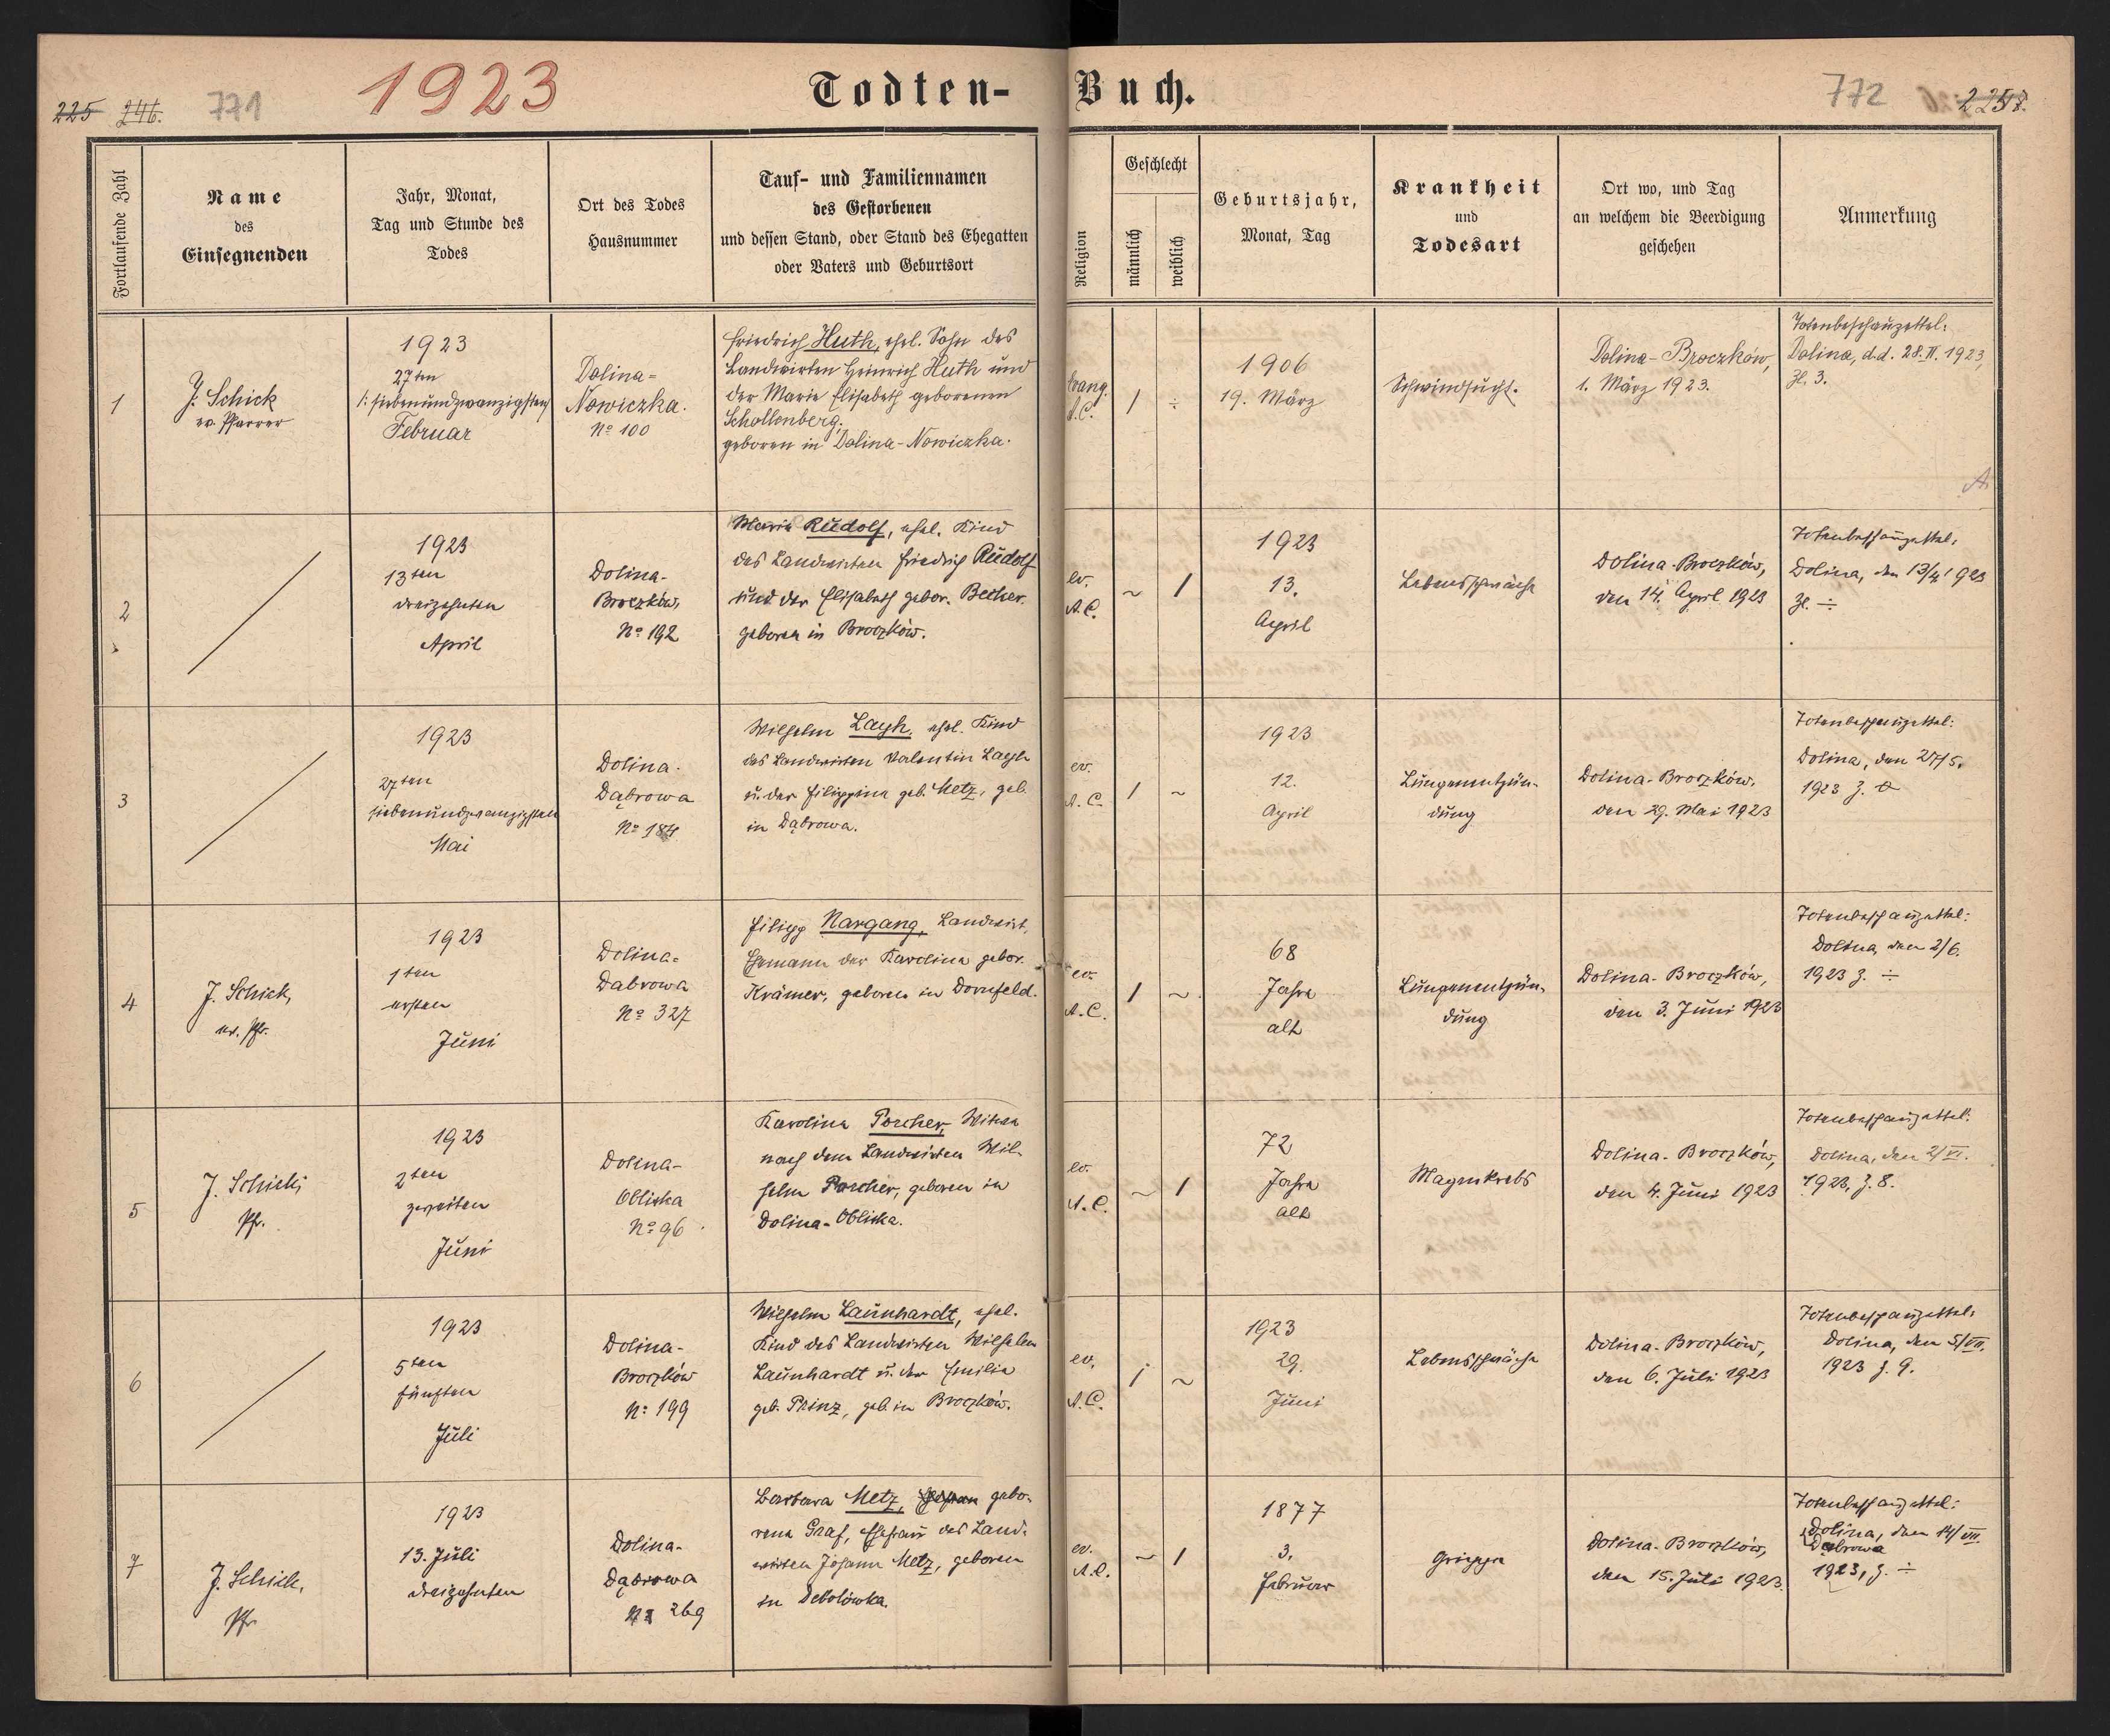 225 246.
771
1923
Todten-Buch.
772
Fortlaufende Zahl
Name
des
Einsegnenden
Jahr, Monat,
Tag und Stunde des
Todes
Ort des Todes
Hausnummer
Tauf- und Familiennamen
des Gestorbenen
und dessen Stand, oder Stand des Ehegatten
oder Vaters und Geburtsort
Religion
Geschlecht
männlich
weiblich
Geburtsjahr,
Monat, Tag
Krankheit
und
Todesart
Ort wo, und Tag
an welchem die Beerdigung
geschehen
Anmerkung
1
J. Schick
ev. Pfarrer
1923
27ten
/: siebenundzwanzigsten
Februar
Dolina-
Nowiczka.
No 100
Friedrich Huth, ehel. Sohn des
Landwirten Heinrich Huth und
der Marie Elisabeth geborenen
Schollenberg,
geboren in Dolina-Nowiczka.
evang.
A.C.
/
÷
1906
19. März
Schwindsucht.
Dolina-Broczków,
1. März 1923.
Totenbeschauzettel:
Dolina, d.d. 28.II.1923,
Zl. 3.
2
1923
13ten
dreizehnten
April
Dolina-
Broczków,
No 192
Maria Rudolf, ehel. Kind
des Landwirten Friedrich Rudolf
und der Elisabeth gebor. Becher.
geboren in Broczków.
ev.
A.C.
~
/
1923
13.
April
Lebensschwäche
Dolina-Broczków,
den 14. April 1923
Totenbeschauzettel:
Dolina, den 13/4 1923
Zl. ÷
3
1923
27ten
siebenundzwanzigsten
Mai
Dolina-
Dąbrowa
No
Wilhelm Layh, ehel. Kind
des Landwirten Valentin Layh
u. der Filippina geb. Metz, geb.
in Dąbrowa.
ev.
A.C.
/
~
1923
12.
April
Lungenentzün-
dung
Dolina-Broczków,
den 29. Mai 1923
Totenbeschauzettel:
Dolina, den 27/5.
1923 Z.
4
J. Schick,
ev. Pfr.
1923
1ten
ersten
Juni
Dolina-
Dabrowa
No 327
Filipp Nargang, Landwirt,
Ehemann der Karolina gebor.
Krämer, geboren in Dornfeld.
ev.
A.C.
/
~
68
Jahre
alt
Lungenentzün-
dung
Dolina-Broczków,
den 3. Juni 1923
Totenbeschauzettel:
Dolina, den 2/6.
1923 Z. ÷
5
J. Schick,
Pfr.
1923
2ten
zweiten
Juni
Dolina-
Obliska
No 96
Karolina Porcher, Witwe
nach dem Landwirten Wil-
helm Porcher, geboren in
Dolina-Obliska.
ev.
A.C.
~
/
72
Jahre
alt
Magenkrebs
Dolina-Broczków,
den 4. Juni 1923
Totenbeschauzettel:
Dolina, den 2/VI.
1923, Z. 8.
6
1923
5ten
fünften
Juli
Dolina-
Broczków
No 199
Wilhelm Launhardt, ehel.
Kind des Landwirten Wilhelm
Launhardt u. der Emilia
geb. Prinz, geb. in Broczków.
ev.
A.C.
/
~
1923
29.
Juni
Lebensschwäche
Dolina-Broczków,
den 6. Juli 1923
Totenbeschauzettel:
Dolina, den 5/VII.
1923 Z. 9.
7
J. Schick,
Pfr
1923
13. Juli
dreizehnten
Dolina-
Dąbrowa
No 269
Barbara Metz, gebo-
rene Graf, Ehefrau des Land-
wirten Johann Metz, geboren
in Debolówka.
ev.
A.C.
~
/
1877
3.
Februar
Grippe
Dolina-Broczków,
den 15. Juli 1923.
Totenbeschauzettel:
Dolina, den 14/VII.
Dąbrowa
1923, Z. ÷